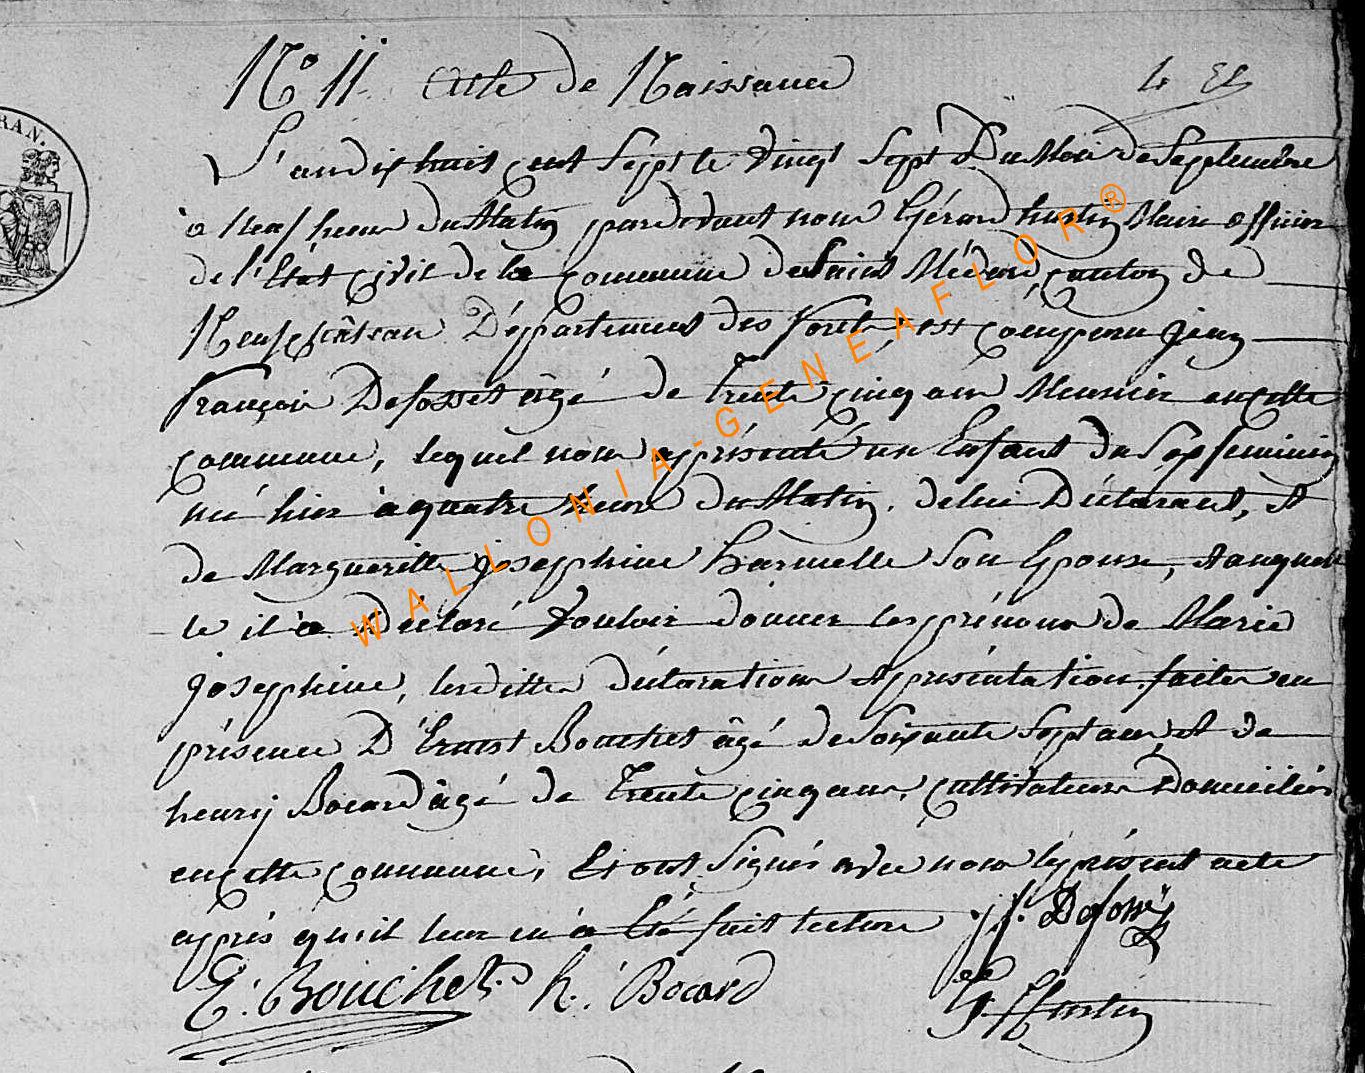 RAN.
N.° 11 acte de Naissance
L'an dix huit cent Sept le vingt Sept Du Mois de Septembre
à Neuf heure du Matin pardevant nous Gérard hustin Maire officier
de l'Etat civil de la commune de Saint Médard, canton de
Neufchâteau Département des forets, est comparu jean
françois Defosset âgé de trente cinq ans Meunier en cette
commune, lequel nous a présenté un Enfant du Sexe feminin
né hier à quatre heure du Matin, de lui Déclarant, et
de Margueritte josephine harmelle Son Epouse, et auquel
le il a Déclaré vouloir donner les prénoms de Marie
josephine, lesdittes déclaration et présentation faites en
présence D'Ernest Bouchet âgé de Soixante Sept ans, et de
henry Bocard âgé de trente cinq ans, cultivateurs Domiciliés
en cette commune, Et ont Signés avec nous le présent acte
après qu'il leur en a Eté fait lecture j f. Defossez
E. Bouchet. h. Bocard G. hustin
WALLONIA-GENEAFLOR®